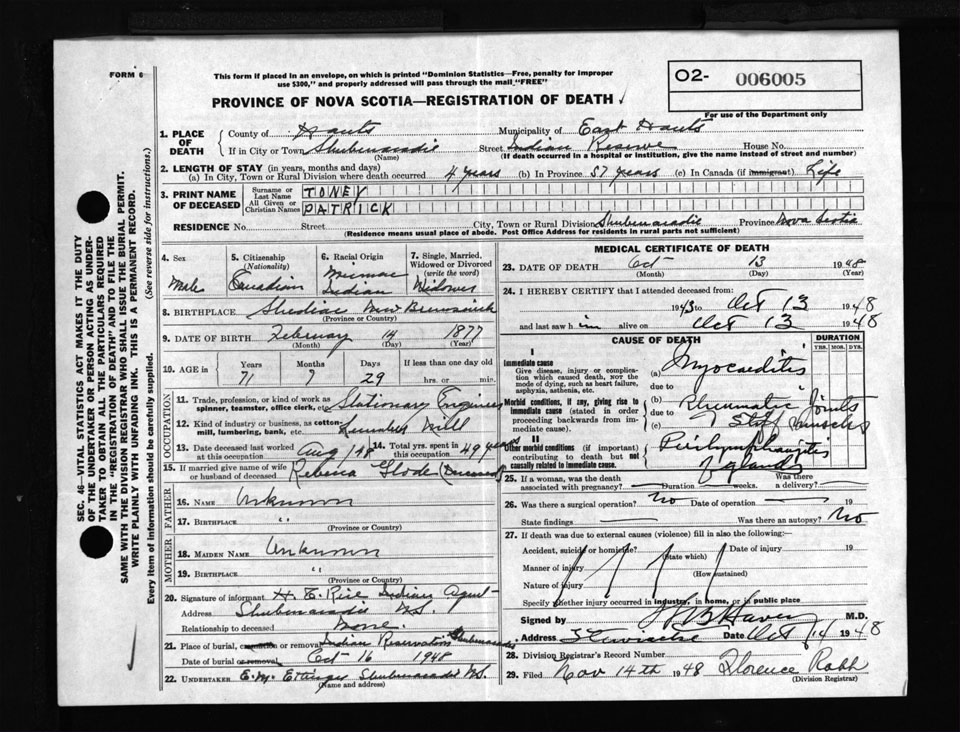 FORM 6
This form if placed in an envelope, on which is printed "Dominion Statistics—Free, penalty for improper
use $300," and properly addressed will pass through the mail "FREE"
O2- 006005
For use of the Department only
PROVINCE OF NOVA SCOTIA—REGISTRATION OF DEATH
SEC. 46—VITAL STATISTICS ACT MAKES IT THE DUTY
OF THE UNDERTAKER OR PERSON ACTING AS UNDER-
TAKER TO OBTAIN ALL THE PARTICULARS AS REQUIRED
IN THE "REGISTRATION OF DEATH" AND TO FILE THE
SAME WITH THE DIVISION REGISTRAR WHO SHALL ISSUE THE BURIAL PERMIT.
WRITE PLAINLY WITH UNFADING INK. THIS IS A PERMANENT RECORD.
Every item of information should be carefully supplied. (See reverse side for instructions.)
1. PLACE OF DEATH
County of Hants Municipality of East Hants
If in City or Town Shubenacadie Street Indian Reserve House No.
(Name) (If death occurred in a hospital or institution, give the name instead of street and number)
2. LENGTH OF STAY (in years, months and days)
(a) In City, Town or Rural Division where death occurred 4 years (b) In Province 57 years (c) In Canada (if immigrant) Life
3. PRINT NAME OF DECEASED
Surname or Last Name TONEY
All Given or Christian Names PATRICK
RESIDENCE No. Street City, Town or Rural Division Shubenacadie Province Nova Scotia
(Residence means usual place of abode. Post Office Address for residents in rural parts not sufficient)
4. Sex Male
5. Citizenship (Nationality) Canadian
6. Racial Origin Micmac Indian
7. Single, Married, Widowed or Divorced (write the word) Widower
8. BIRTHPLACE Shediac New Brunswick
(Province or Country)
9. DATE OF BIRTH February 14 1877
(Month) (Day) (Year)
10. AGE in Years Months Days If less than one day old
71 7 29 hrs. or min.
OCCUPATION
11. Trade, profession, or kind of work as
spinner, teamster, office clerk, etc. Stationary Engineer
12. Kind of industry or business, as cotton
mill, lumbering, bank, etc. Lumber Mill
13. Date deceased last worked at this occupation Aug /48
14. Total yrs. spent in this occupation 49 years
15. If married give name of wife
or husband of deceased Rebecca Glode (Deceased)
FATHER
16. NAME Unknown
17. BIRTHPLACE "
(Province or Country)
MOTHER
18. MAIDEN NAME Unknown
19. BIRTHPLACE "
(Province or Country)
20. Signature of informant H. C. Rice Indian Agent
Address Shubenacadie N.S.
Relationship to deceased None.
21. Place of burial, cremation or removal Indian Reservation Shubenacadie
Date of burial or removal Oct 16 1948
22. UNDERTAKER E. M. Ettinger Shubenacadie N.S.
(Name and address)
MEDICAL CERTIFICATE OF DEATH
23. DATE OF DEATH Oct 13 1948
(Month) (Day) (Year)
24. I HEREBY CERTIFY that I attended deceased from:
1943 to Oct 13 1948
and last saw him alive on Oct 13 1948
CAUSE OF DEATH
DURATION
YRS. MOS. DYS.
I
Immediate cause
Give disease, injury or complica-
tion which caused death, not the
mode of dying, such as heart failure,
asphyxia, asthenia, etc.
(a) Myocarditis
due to
Morbid conditions, if any, giving rise to
immediate cause (stated in order
proceeding backwards from im-
mediate cause).
(b) Rheumatic Joints
due to
(c) Stiff muscles
II
Other morbid conditions (if important)
contributing to death but not
causally related to immediate cause.
glands
25. If a woman, was the death
associated with pregnancy? Duration weeks. Was there a delivery?
26. Was there a surgical operation? No Date of operation 19
State findings Was there an autopsy? No
27. If death was due to external causes (violence) fill in also the following:
Accident, suicide or homicide? (State which) Date of injury 19
Manner of injury
(How sustained)
Nature of injury
Specify whether injury occurred in industry, in home, or in public place
Signed by M.D.
Address Date Oct 14 1948
28. Division Registrar's Record Number
29. Filed Nov 14th 1948 Florence Robb
(Division Registrar)